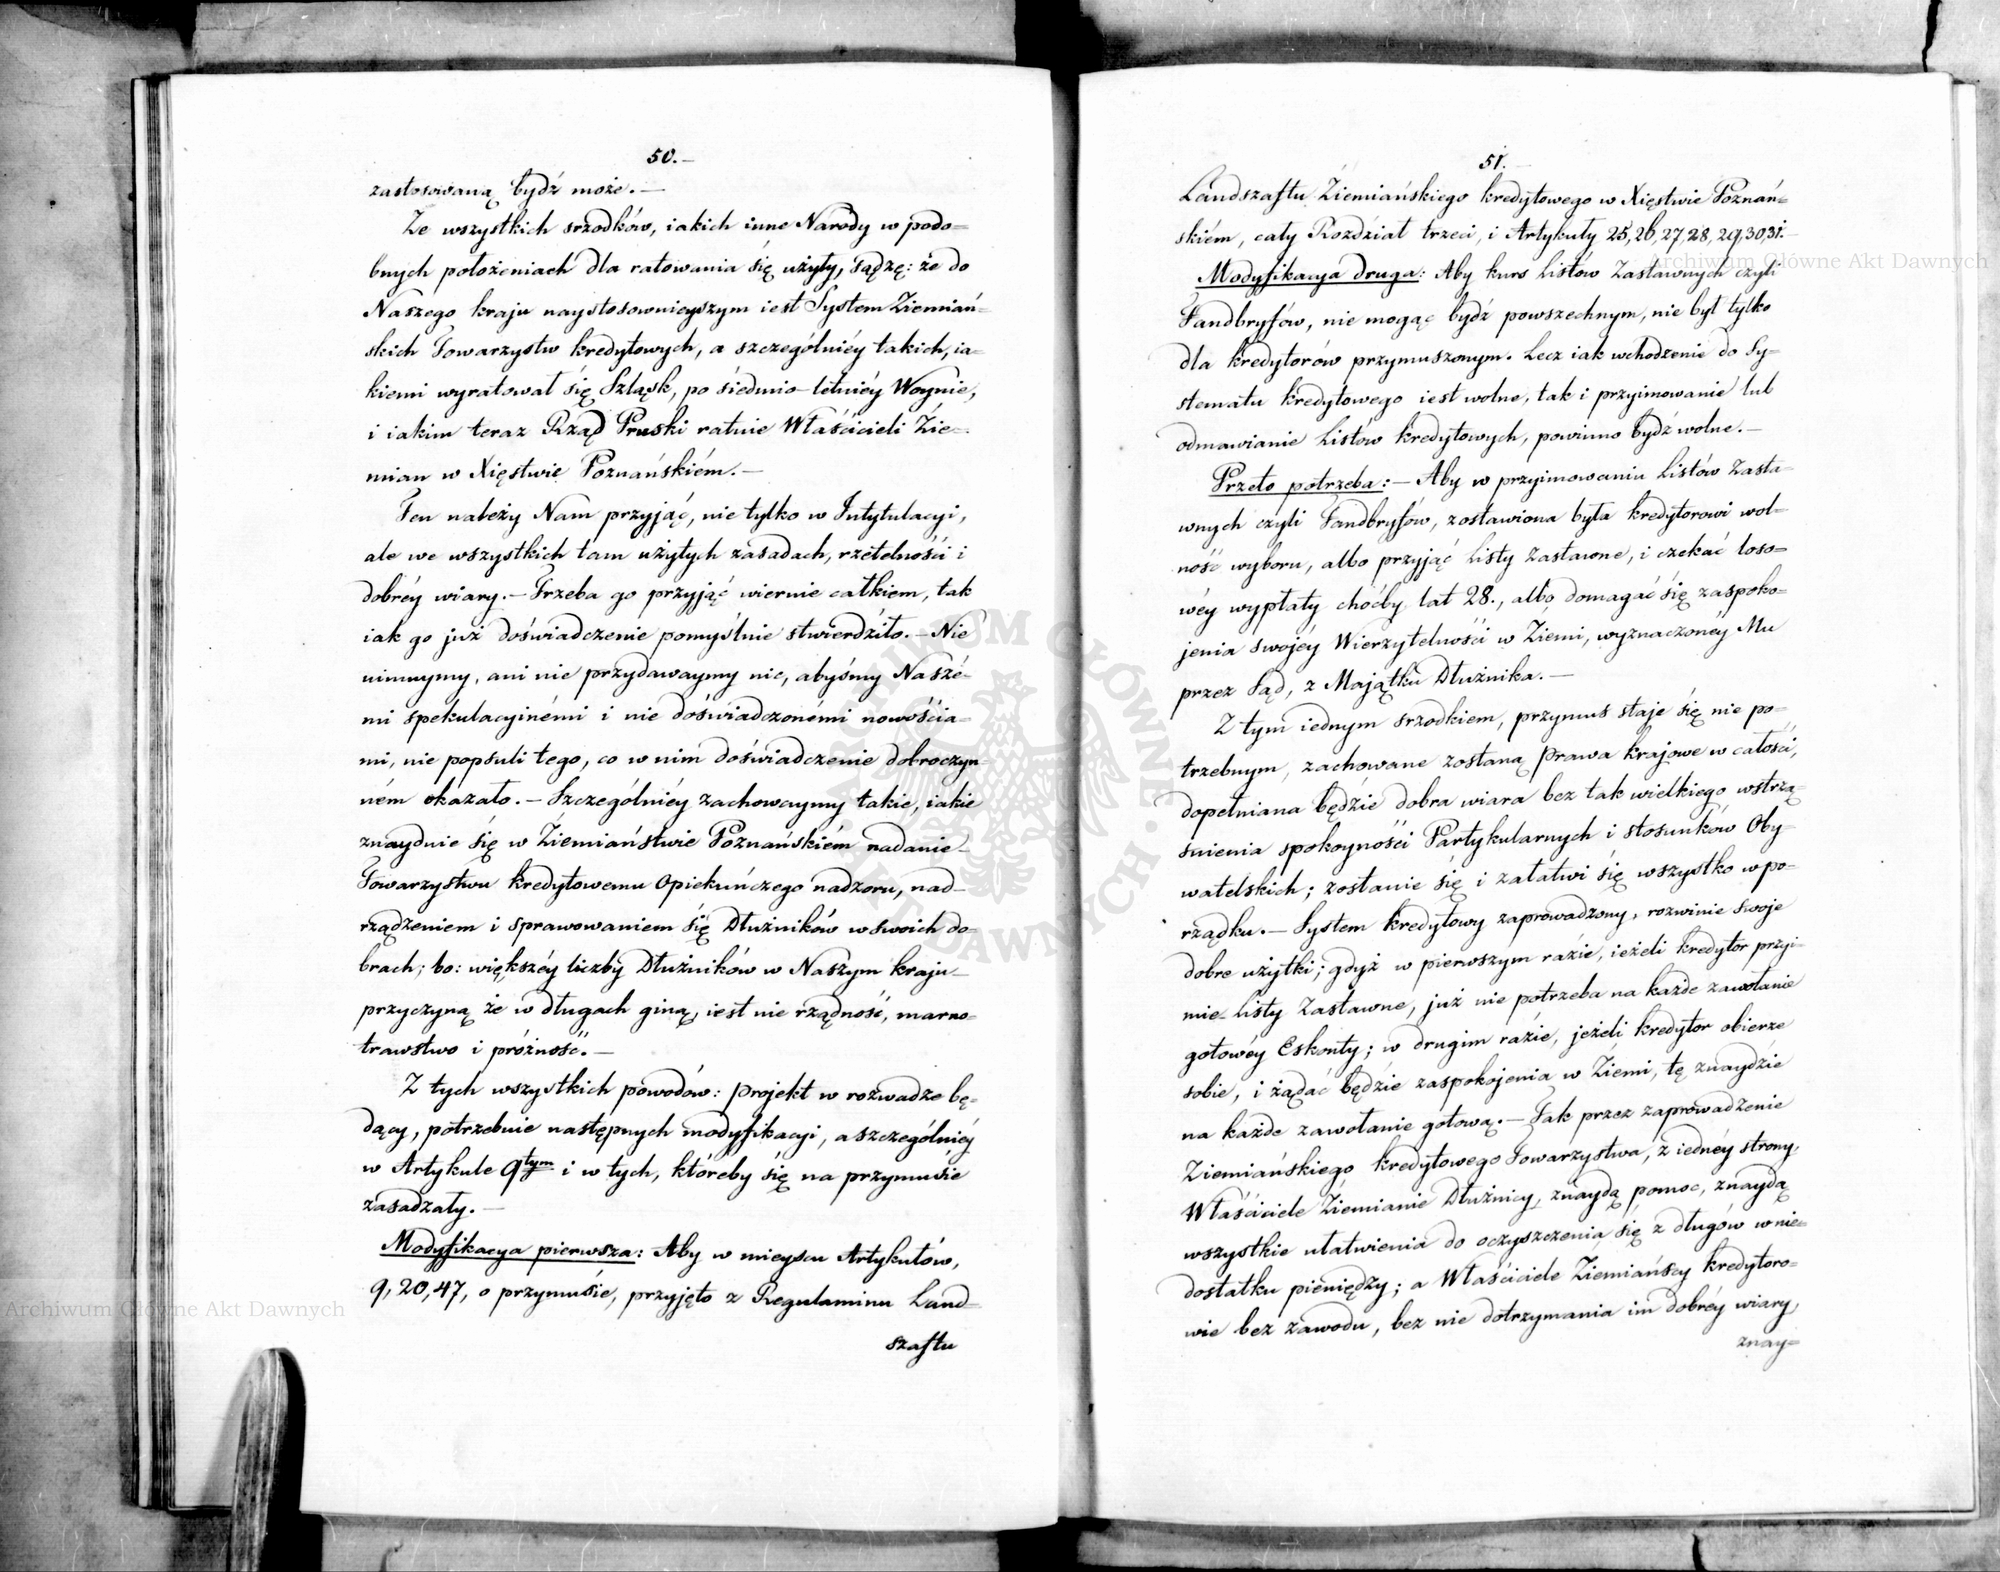 50.—
zastosowaną bydź może.—
Ze wszystkich srzodków, iakich inne Narody w podo=
bnych położeniach dla ratowania się użyły, sądzę: że do
Naszego kraju naystosownieyszym iest System Ziemiań=
skich Towarzystw kredytowych, a szczególniéy takich, ia=
kiemi wyratował się Szląsk, po siedmio-letniéy Woynie,
i iakim teraz Rząd Pruski ratuie Właścicieli Zie=
mian w Xięstwie Poznańskiém.—
Ten należy Nam przyjąć, nie tylko w Intytulacyi,
ale we wszystkich tam użytych zasadach, rzetelności i
dobréy wiary.— Trzeba go przyjąć wiernie całkiem, tak
iak go już doświadczenie pomyślnie stwierdziło.— Nie
uimuymy, ani nie przydawaymy nic, abyśmy Naszé=
mi spekulacyinémi i nie doświadczonémi nowościa=
mi, nie popsuli tego, co w nim doświadczenie dobroczyn=
ném okazało.— Szczególniéy zachowaymy takie, iakie
znayduie się w Ziemiaństwie Poznańskiém nadanie
Towarzystwu kredytowemu Opiekuńczego nadzoru, nad
rządzeniem i sprawowaniem się Dłużników w swoich do=
brach; bo: większéy liczby Dłużników w Naszym kraju
przyczyną że w długach giną, iest nie rządność, marno=
trawstwo i próżność.—
Z tych wszystkich powodów: projekt w rozwadze bę=
dący, potrzebuie następnych modyfikacyi, a szczególniéy
w Artykule 9tym i w tych, któreby się na przymusie
zasadzały.—
Modyfikacya pierwsza: Aby w mieyscu Artykułów,
9, 20, 47, o przymusie, przyjęto z Regulaminu Land=
szaftu
51.—
Landszaftu Ziemiańskiego kredytowego w Xięstwie Poznań=
skiém, cały Rozdział trzeci, i Artykuły 25, 26, 27, 28, 29, 30, 31.—
Modyfikacya druga: Aby kurs Listów Zastawnych czyli
Fandbryfów, nie mogąc bydź powszechnym, nie był tylko
dla kredytorów przymuszonym. Lecz iak wchodzenie do Sy=
stematu kredytowego iest wolne, tak i przyimowanie lub
odmawianie Listów kredytowych, powinno bydź wolne.—
Przeto potrzeba:— Aby w przyimowaniu Listów Zasta=
wnych czyli Fandbryfów, zostawiona była kredytorowi wol=
ność wyboru, albo przyjąć Listy Zastawne, i czekać loso=
wéy wypłaty choćby lat 28., albo domagać się zaspoko=
jenia swojéy Wierzytelności w Ziemi, wyznaczonéy Mu
przez Sąd, z Majątku Dłużnika.—
Z tym iednym srzodkiem, przymus staje się nie po=
trzebnym, zachowane zostaną Prawa krajowe w całości,
dopełniana będzie dobra wiara bez tak wielkiego wstrzą=
śnienia spokoyności Partykularnych i stosunków Oby=
watelskich; zostanie się i załatwi się wszystko w po=
rządku.— System kredytowy zaprowadzony, rozwinie swoje
dobre użytki; gdyż w pierwszym razie, ieżeli kredytor przyi=
mie Listy Zastawne, już nie potrzeba na każde zawołanie
gotowéy Eskonty; w drugim razie, jeżeli kredytor obierze
sobie, i żądać będzie zaspokojenia w Ziemi, tę znaydzie
na każde zawołanie gotową.— Tak przez zaprowadzenie
Ziemiańskiego kredytowego Towarzystwa, z iednéy strony
Właściciele Ziemianie Dłużnicy, znaydą pomoc, znaydą
wszystkie ułatwienia do oczyszczenia się z długów w nie=
dostatku pieniędzy; a Właściciele Ziemiańscy kredytoro=
wie bez zawodu, bez nie dotrzymania im dobréy wiary,
znay=
Archiwum Główne Akt Dawnych
Archiwum Główne Akt Dawnych
ARCHIWUM GŁÓWNE AKT DAWNYCH